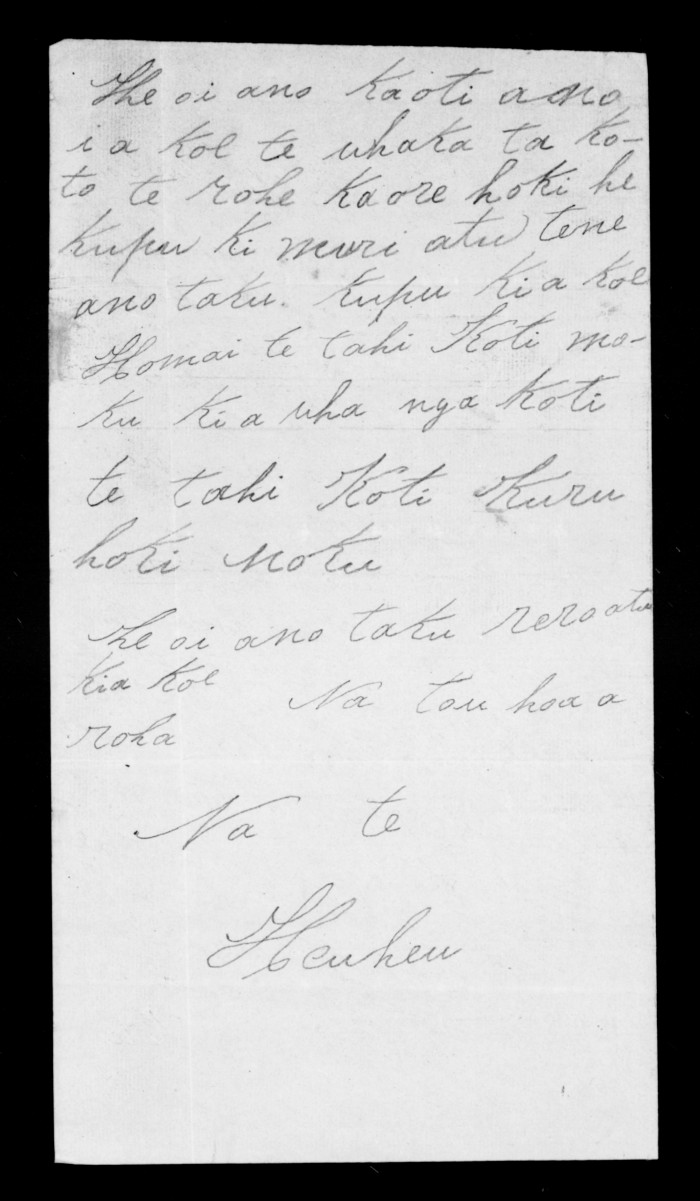 He oi ano Kaoti ano
i a koe te whaka ta ko-
to te rohe kaore hoki he
kupu ki muri atu tene
ano taku. kupu ki a koe
Homai te tahi Koti mo-
ku ki a wha nga koti
te tahi Koti Kuru
hoki moku
he oi ano taku rero atu
kia koe Na tou hoa a
roha
Na te
Heuheu